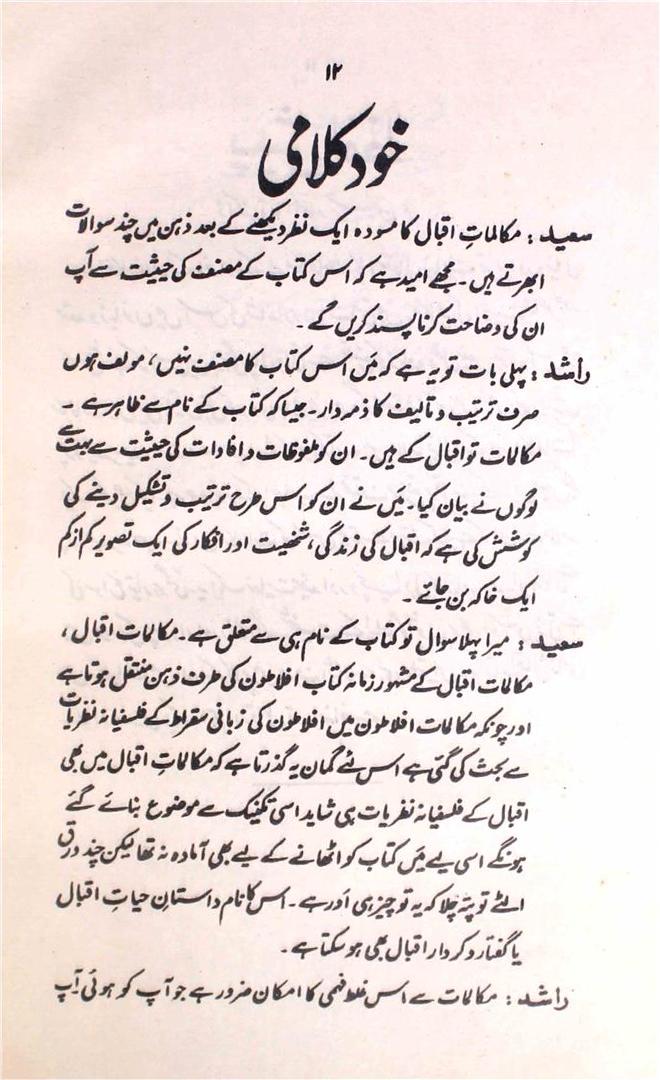 ۱۲
خود کلامی
سعید : مکالماتِ اقبال کا مسودہ ایک نظر دیکھنے کے بعد ذہن میں چند سوالات
ابھرتے ہیں ۔ مجھے امید ہے کہ اس کتاب کے مصنف کی حیثیت سے آپ
ان کی وضاحت کرنا پسند کریں گے ۔
راشد : پہلی بات تو یہ ہے کہ مَیں اس کتاب کا مصنف نہیں ، مولف ہوں
صرف ترتیب و تالیف کا ذمہ دار ۔ جیسا کہ کتاب کے نام سے ظاہر ہے ۔
مکالمات تو اقبال کے ہیں ۔ ان کو ملفوظات و افادات کی حیثیت سے بہت سے
لوگوں نے بیان کیا ۔ مَیں نے ان کو اس طرح ترتیب و تشکیل دینے کی
کوشش کی ہے کہ اقبال کی زندگی ، شخصیت اور افکار کی ایک تصویر کم از کم
ایک خاکہ بن جائے ۔
سعید : میرا پہلا سوال تو کتاب کے نام ہی سے متعلق ہے ۔ مکالمات اقبال ،
مکالمات اقبال کے مشہور زمانہ کتاب افلاطون کی طرف ذہن منتقل ہوتا ہے
اور چونکہ مکالمات افلاطون میں افلاطون کی زبانی سقراط کے فلسفیانہ نظریات
سے بحث کی گئی ہے اس لئے گمان یہ گذرتا ہے کہ مکالماتِ اقبال میں بھی
اقبال کے فلسفیانہ نظریات ہی شاید اسی تکنیک سے موضوع بنائے گئے
ہونگے اسی لیے مَیں کتاب کو اٹھانے کے لیے بھی آمادہ نہ تھا لیکن چند ورق
الٹے تو پتہ چلا کہ یہ تو چیز ہی اَور ہے ۔ اس کا نام داستانِ حیاتِ اقبال
یا گفتار و کردار اقبال بھی ہو سکتا ہے ۔
راشد : مکالمات سے اس غلط فہمی کا امکان ضرور ہے جو آپ کو ہوئی آپ